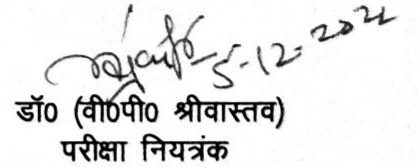 5-12-2022
डॉ0 (वी0पी0 श्रीवास्तव)
परीक्षा नियत्रंक